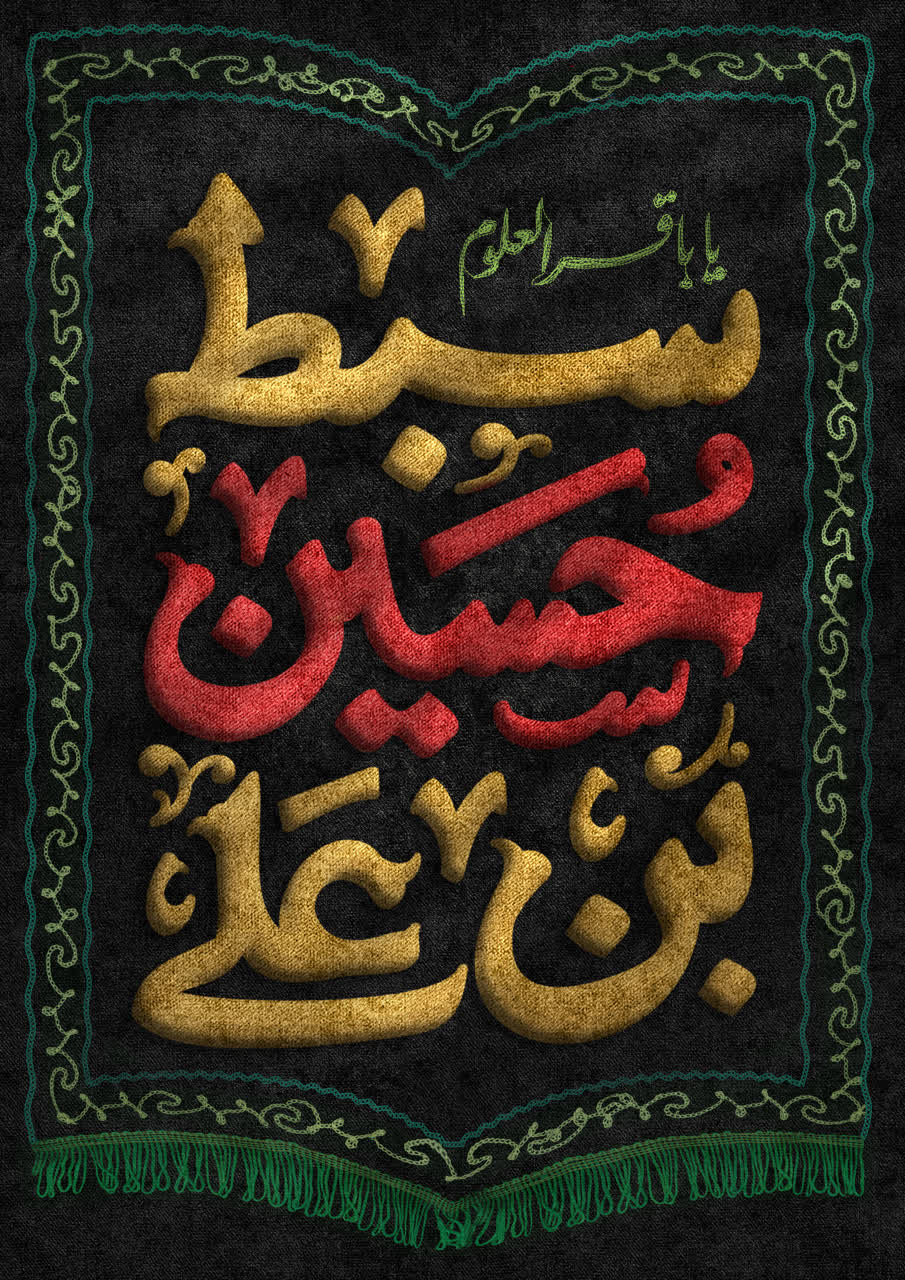 یا باقر العلوم
سبط
حُسَین
بن عَلے